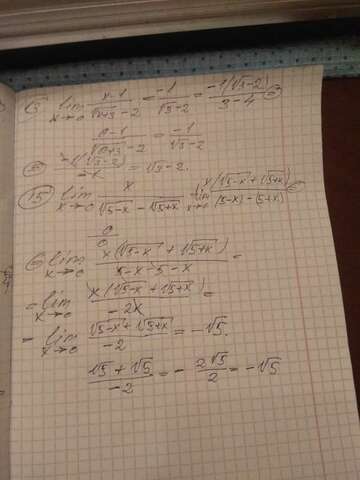 13 lim x→0 x-1/√x+3 -2 = -1/√3-2 = -1(√3-2)/3-4 =
0-1/√0+3 -2 = -1/√3-2
= -1(√3-2)/-1 = √3-2.
15 lim x→0 x/√5-x - √5+x = lim x→0 x(√5-x + √5+x)/(5-x)-(5+x) =
0/0
= lim x→0 x(√5-x + √5+x)/5-x-5-x =
= lim x→0 x(√5-x + √5+x)/-2x =
= lim x→0 √5-x + √5+x/-2 = -√5.
√5+√5/-2 = - 2√5/2 = -√5